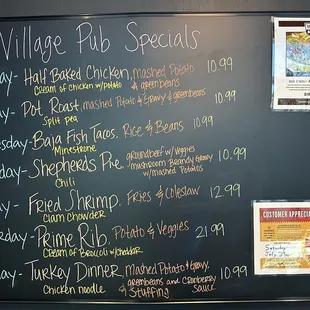 Village Pub Specials
ay- Half Baked Chicken, mashed Potato 10.99
Cream of Chicken w/potato & greenbeans
ay- Pot Roast, mashed Potato & Gravy & greenbeans 10.99
Split pea
sday- Baja Fish Tacos. Rice & Beans 10.99
Minestrone
day- Shepherds Pie groundbeef w/ Veggies 10.99
mushroom Brandy Gravy
Chili w/mashed Potatos
ay- Fried Shrimp. Fries & Coleslaw 12.99
Clam Chowder
rday- Prime Rib. Potato & Veggies 21.99
Cream of Broccoli w/cheddar
ay- Turkey Dinner, mashed Potato & Gravy, 10.99
greenbeans and Cranberry
Chicken noodle & Stuffing Sauce
CUSTOMER APPRECIA
Saturday